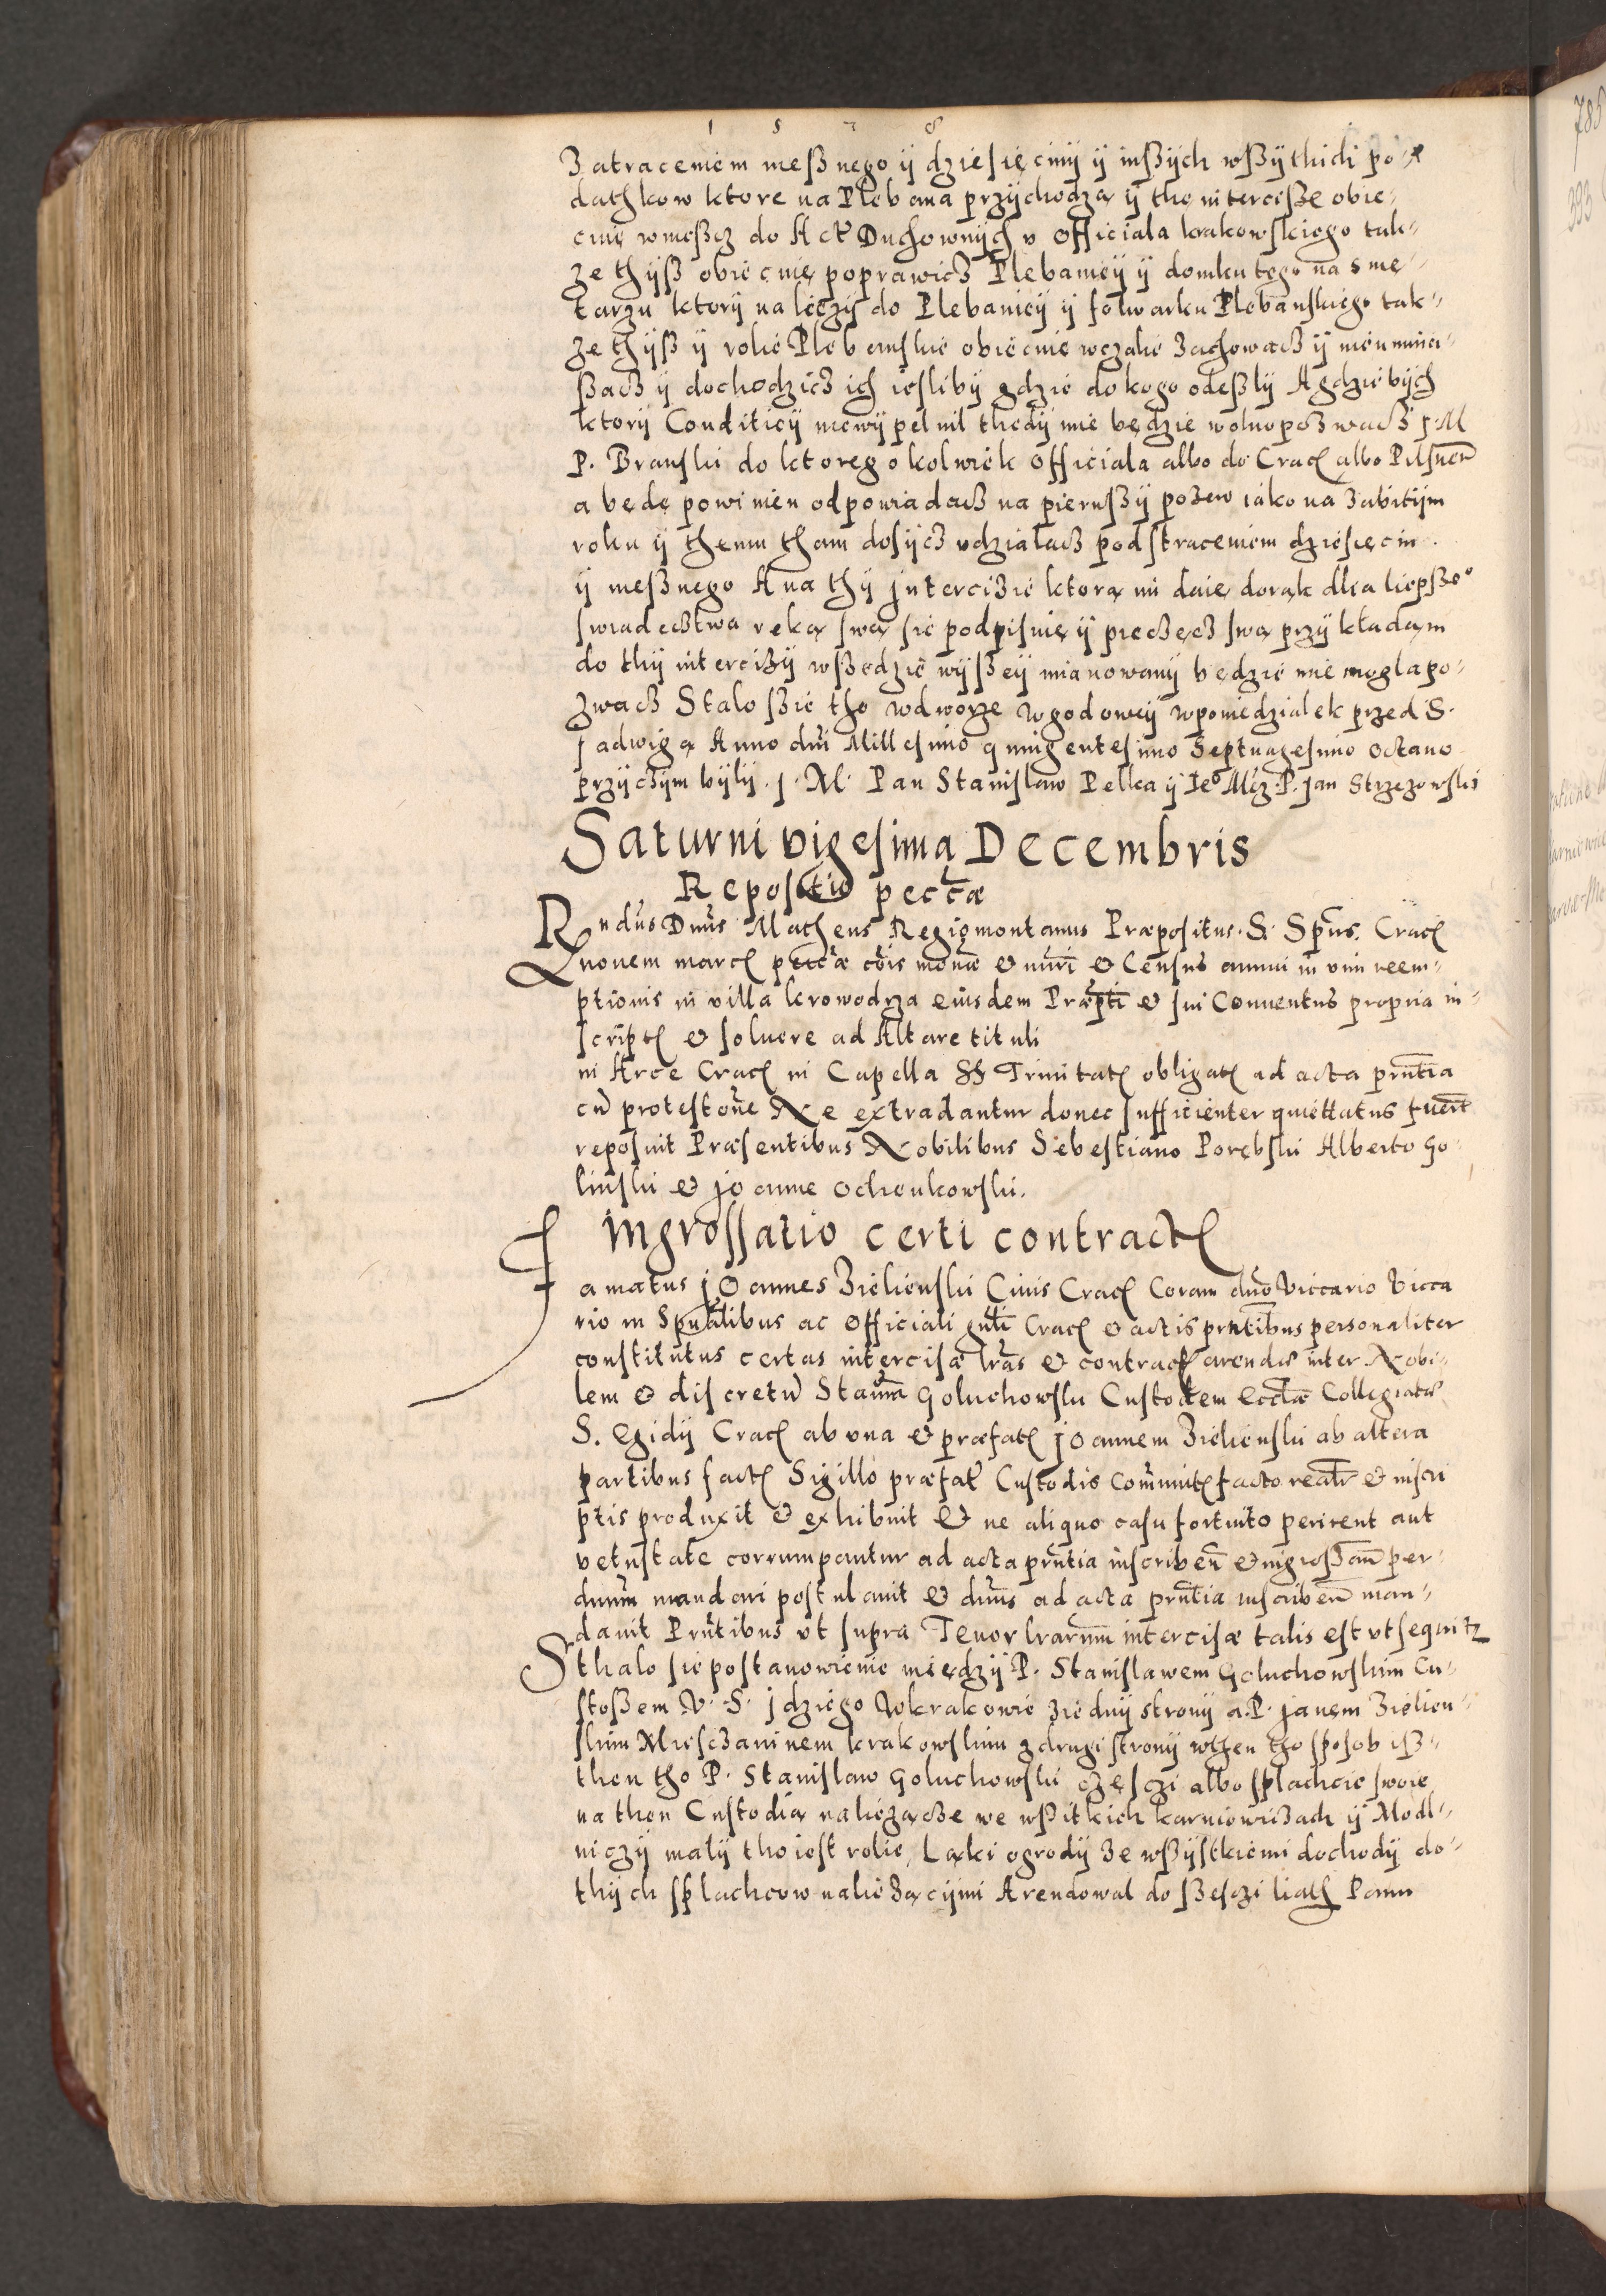 1 5 7 8
Zatraceniem meßnego ÿ dziesięcinÿ ÿ inßÿch wßÿthich po-
dathkow ktore na Plebana przÿchodzą ÿ tho intercißę obie-
cuię wnießcz do Act Duchownÿch v Officiala krakowskiego tak-
ze thÿß obiecuię poprawicz Plebanieÿ ÿ domku tego na sme-
tarzu ktorÿ nalieżÿ do Plebanieÿ ÿ folwarku Plebanskiego tak-
ze thÿß ÿ rolie Plebanskie obiecuię wczalie zachowacz ÿ nieumnieÿ-
ßacz ÿ dochodzicz ich ieslibÿ gdzie do kogo odeßlÿ A gdziebÿch
ktorÿ Conditieÿ niewÿpelnil thedÿ mie będzie wolno pozwacz J. M
P. Branski do ktoregokolwiek Officiala albo do Crac albo Pilsnen
a będę powinien odpowiadacz na pierwßÿ pozew iako na zawitÿm
roku ÿ themu tham dosÿcz vdzialacz pod straceniem dziesięcin
ÿ meßnego A na thÿ Intercizie ktorą mu daię dorąk dlia liepße°
swiadecztwa ręką swą sie podpisuię ÿ pieczęcz swą przÿkladam
do thÿ intercizÿ wßędzie wÿßeÿ mianowanÿ będzie mie mogla po-
zwacz Stalo ßie tho wdworze Wgodoweÿ wponiedzialek przed S.
Jadwigą Anno dni Millesimo quingentesimo Septuagesimo octavo
przÿczÿm bÿlÿ J. M. Pan Stanislaw Pelka ÿ Ie° Mcz. P. Jan Strzezowski
Saturni vigesima Decembris
Repositio pecciæ
Rndus Dnus Matheus Regiomontanus Præpositus S. Spus. Crac
novem marc pecciæ cois monæ & nuri & Census annui in vim reem-
ptionis in villa krowodrza eiusdem Præpti & sui Conventus propria in-
script & solvere ad Altare tituli
in Arce Crac in Capella SS Trinitat obligat ad acta prntia
cu protestone Ne extradantur donec sufficienter quiettatus fuerit
reposuit Præsentibus Nobilibus Sebestiano Porębski Alberto Go-
linski & Joanne Ochenkowski.
Ingrossatio certi contract
Famatus Joannes Zielienski Civis Crac Coram dno Viccario Vicca
rio in Spualibus ac Officiali gnli Crac & actis prntibus personaliter
constitutus certas intercisæ lras & contract arendæ inter Nobi-
lem & discretu Stanm Goluchowski Custodem Eccliæ Collegiatæ
S. Egidij Crac ab vna & præfat Joannem Zielienski ab altera
partibus fact Sigillo præfat Custodis Commnit facto reatr & inscri
ptis produxit & exhibuit & ne aliquo casu fortuito perirent aut
vetustate corrumpantur ad acta prntia inscriben & ingrossan per
dnum mandari postulavit & dnus ad acta prntia inscriben man-
davit Prntibus vt supra Tenor lrarum intercisæ talis est vt sequitr
Sthalo sie postanowienie międzÿ P. Stanislawem Goluchowskim Cu-
stoßem V. S. Jdziego Wkrakowie ziednÿ stronÿ a. P. Janem Zielien-
skim Miesczaninem krakowskim zdrugi stronÿ wthen tho sposob iß-
then tho P. Stanislaw Goluchowski częsczi albo splachcie swoie
na then Custodią nalieżącze we wßitkich karniowizach ÿ Modl-
niczÿ malÿ tho iest rolie, Ląki ogrodÿ ze wßÿstkiemi dochodÿ do-
thÿch splachcow nalieżącÿmi Arendowal do ßesczi liath Panu